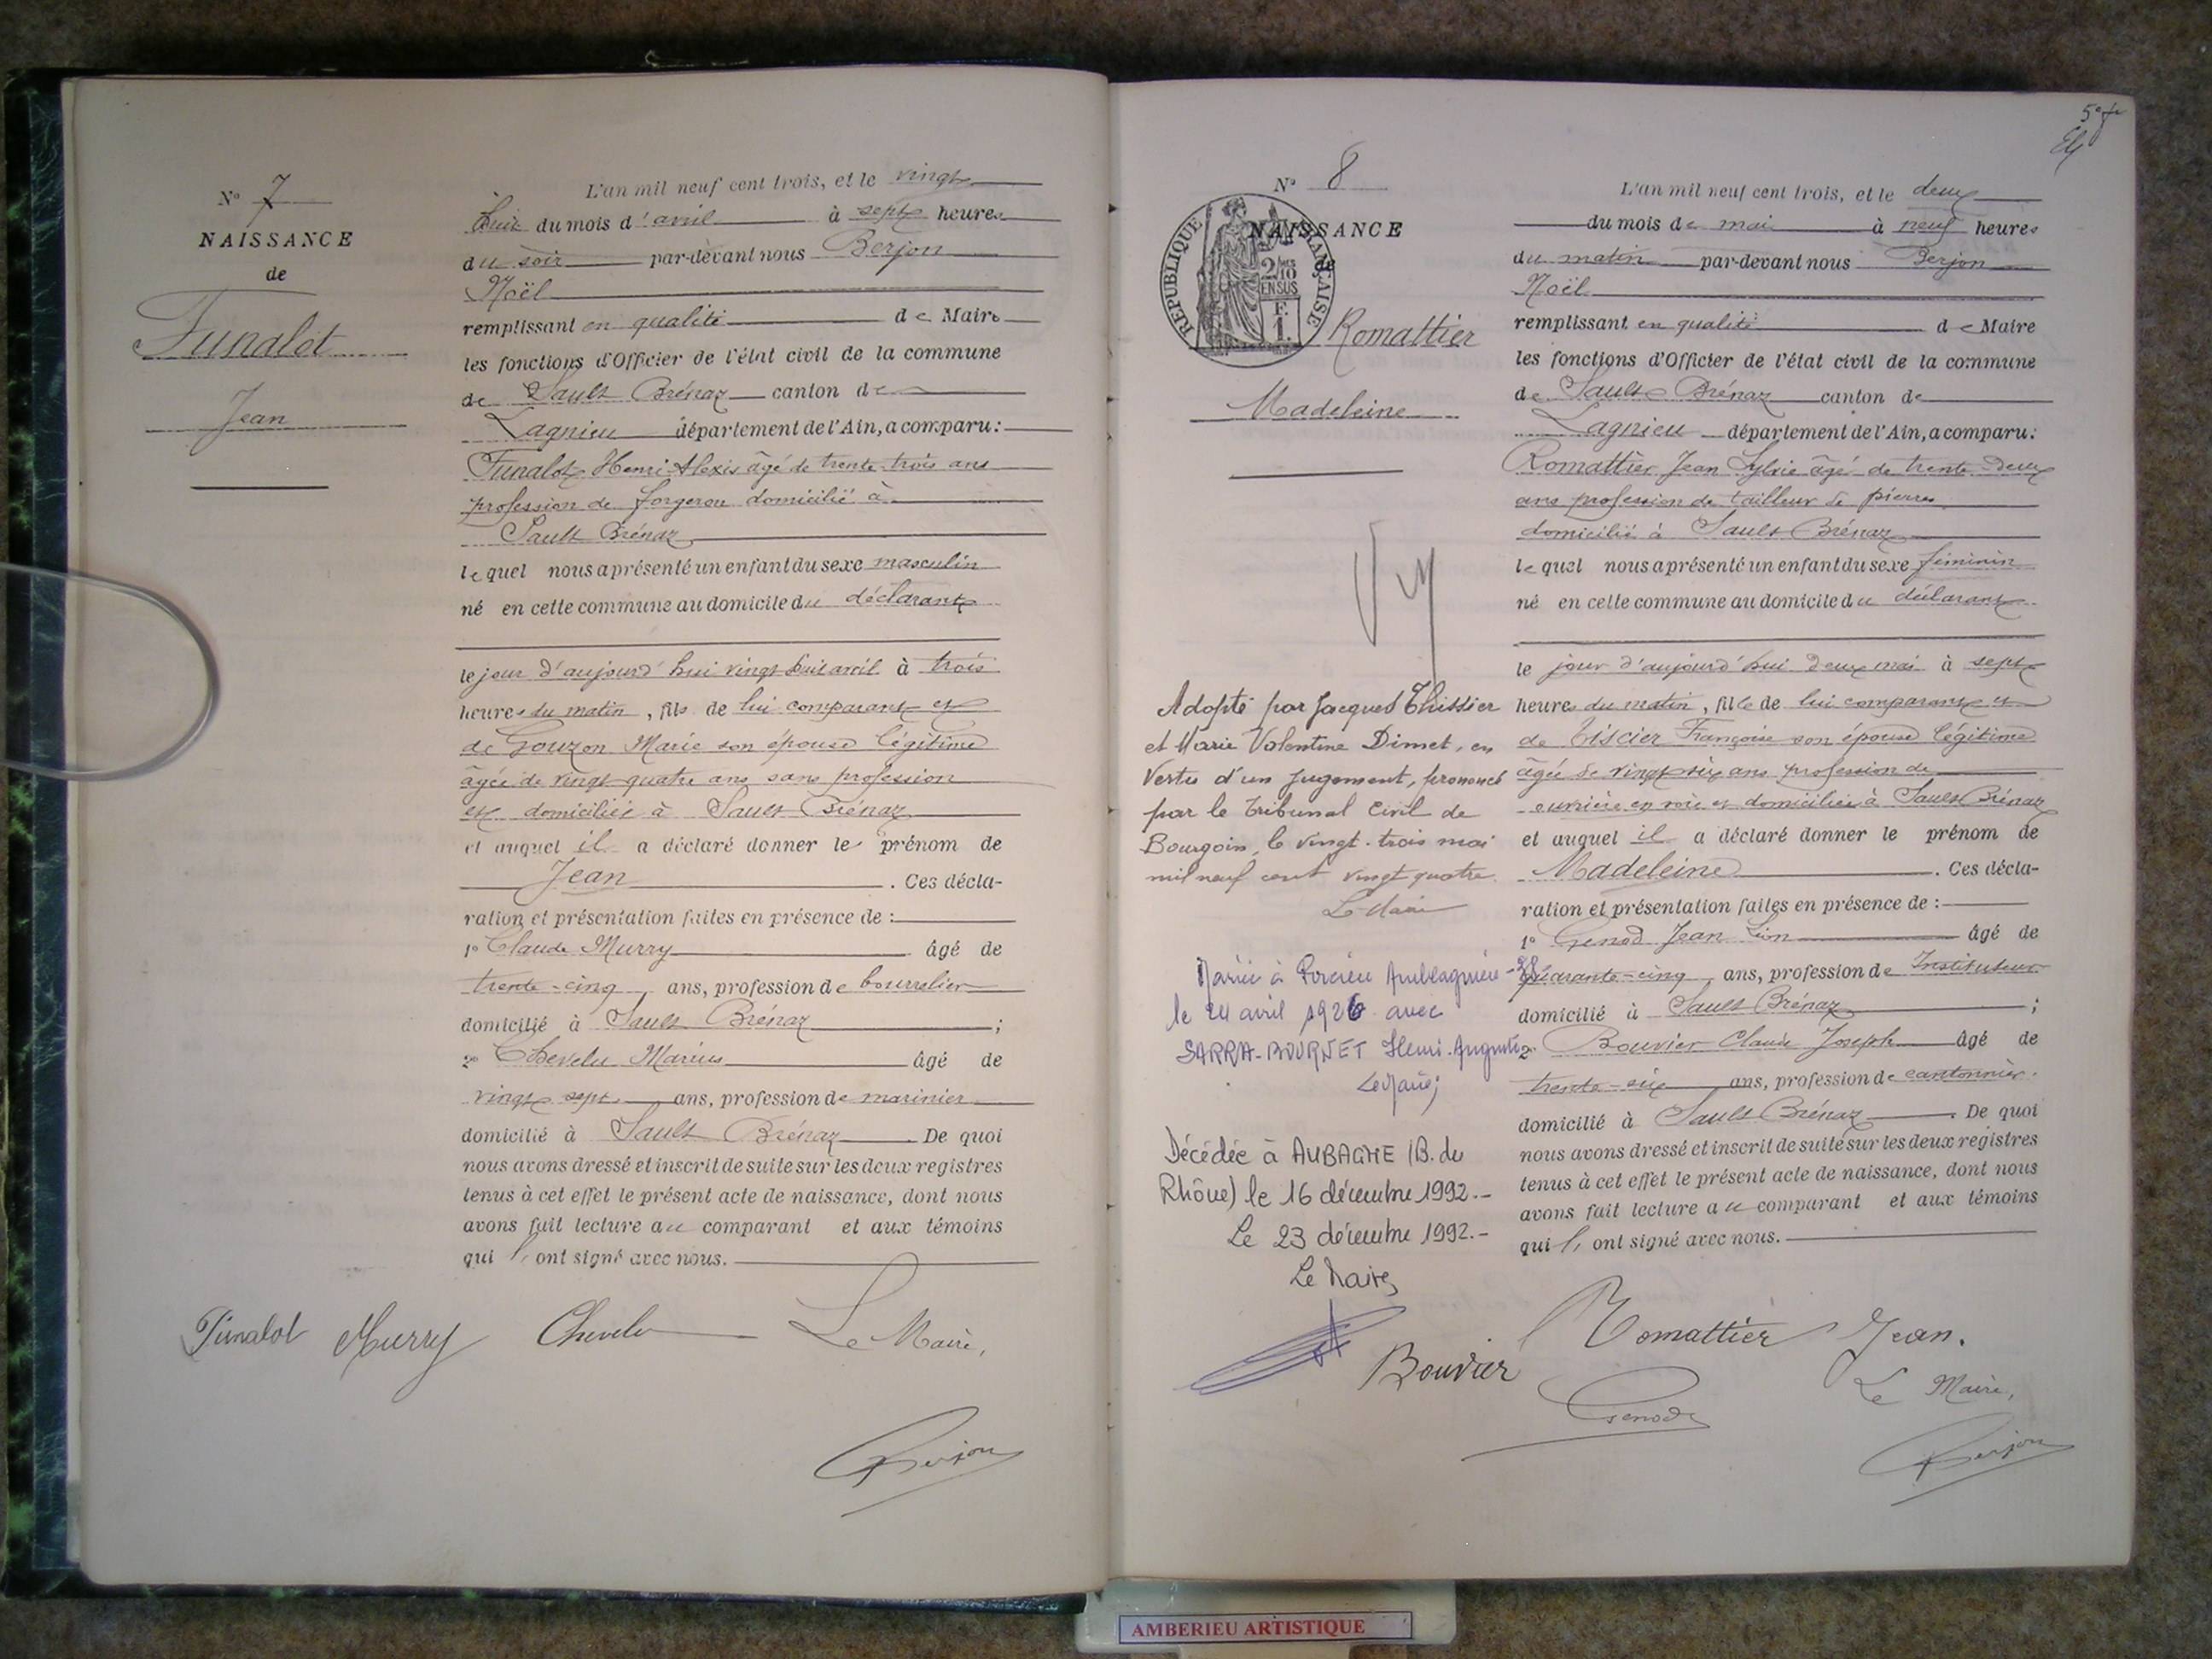 N° 7
NAISSANCE
de
Funalot
Jean
L'an mil neuf cent trois, et le vingt
huit du mois d'avril à sept heures
du soir par-devant nous Berjon
Noël
remplissant en qualité de Maire
les fonctions d'Officier de l'état civil de la commune
de Sault Brénaz canton de
Lagnieu département de l'Ain, a comparu:
Funalot Henri Alexis âgé de trente trois ans
profession de forgeron domicilié à
Sault Brénaz
lequel nous a présenté un enfant du sexe masculin
né en cette commune au domicile du déclarant
le jour d'aujourd'hui vingt huit avril à trois
heures du matin, fils de lui comparant et
de Gouzon Marie son épouse légitime
âgée de vingt quatre ans sans profession
et domiciliée à Sault Brénaz
et auquel il a déclaré donner le prénom de
Jean . Ces décla-
ration et présentation faites en présence de :
1° Claude Murry âgé de
trente-cinq ans, profession de bourrelier
domicilié à Sault Brénaz ;
2° Chevelu Marius âgé de
vingt sept ans, profession de marinier
domicilié à Sault Brénaz . De quoi
nous avons dressé et inscrit de suite sur les deux registres
tenus à cet effet le présent acte de naissance, dont nous
avons fait lecture au comparant et aux témoins
qui l' ont signé avec nous.
Funalot Murry Chevelu Le Maire,
Berjon
5e
N° 8
NAISSANCE
de
RÉPUBLIQUE FRANÇAISE
2/10 EN SUS
F. 1.
Romattier
Madeleine
L'an mil neuf cent trois, et le deux
du mois de mai à neuf heures
du matin par-devant nous Berjon
Noël
remplissant en qualité de Maire
les fonctions d'Officier de l'état civil de la commune
de Sault Brénaz canton de
Lagnieu département de l'Ain, a comparu:
Romattier Jean Sylvie âgé de trente-deux
ans profession de tailleur de pierres
domicilié à Sault Brénaz
lequel nous a présenté un enfant du sexe féminin
né en cette commune au domicile du déclarant
le jour d'aujourd'hui deux mai à sept
heures du matin, fille de lui comparant et
de Tiscier Françoise son épouse légitime
âgée de vingt six ans profession de
ouvrière en soie et domiciliée à Sault Brénaz
et auquel il a déclaré donner le prénom de
Madeleine . Ces décla-
ration et présentation faites en présence de :
1° Genod Jean Léon âgé de
quarante-cinq ans, profession de Instituteur
domicilié à Sault Brénaz ;
2° Bouvier Claude Joseph âgé de
trente-six ans, profession de cantonnier
domicilié à Sault Brénaz . De quoi
nous avons dressé et inscrit de suite sur les deux registres
tenus à cet effet le présent acte de naissance, dont nous
avons fait lecture au comparant et aux témoins
qui l' ont signé avec nous.
Adopté par Jacques Thissier
et Marie Valentine Dimet, en
Vertu d'un jugement, prononcé
par le Tribunal Civil de
Bourgoin, le vingt-trois mai
mil neuf cent vingt quatre.
Le Maire
Mariée à Porcieu Amblagnieu -38
le 24 avril 1926 avec
SARRA-BOURNET Henri-Auguste
Le Maire,
Décédée à AUBAGNE (B. du
Rhône) le 16 décembre 1992.-
Le 23 décembre 1992.-
Le Maire,
Bouvier Romattier Jean.
Genod Le Maire,
Berjon
AMBERIEU ARTISTIQUE